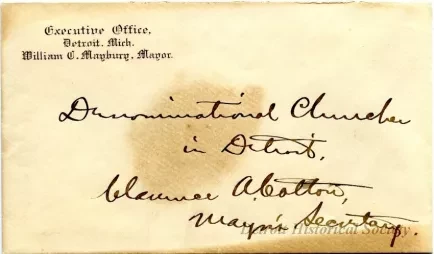 Executive Office,
Detroit, Mich.
William C. Maybury, Mayor.
Denominational Churches
in Detroit,
Clarence A. Cotton,
Mayor's Secretary.
Detroit Historical Society